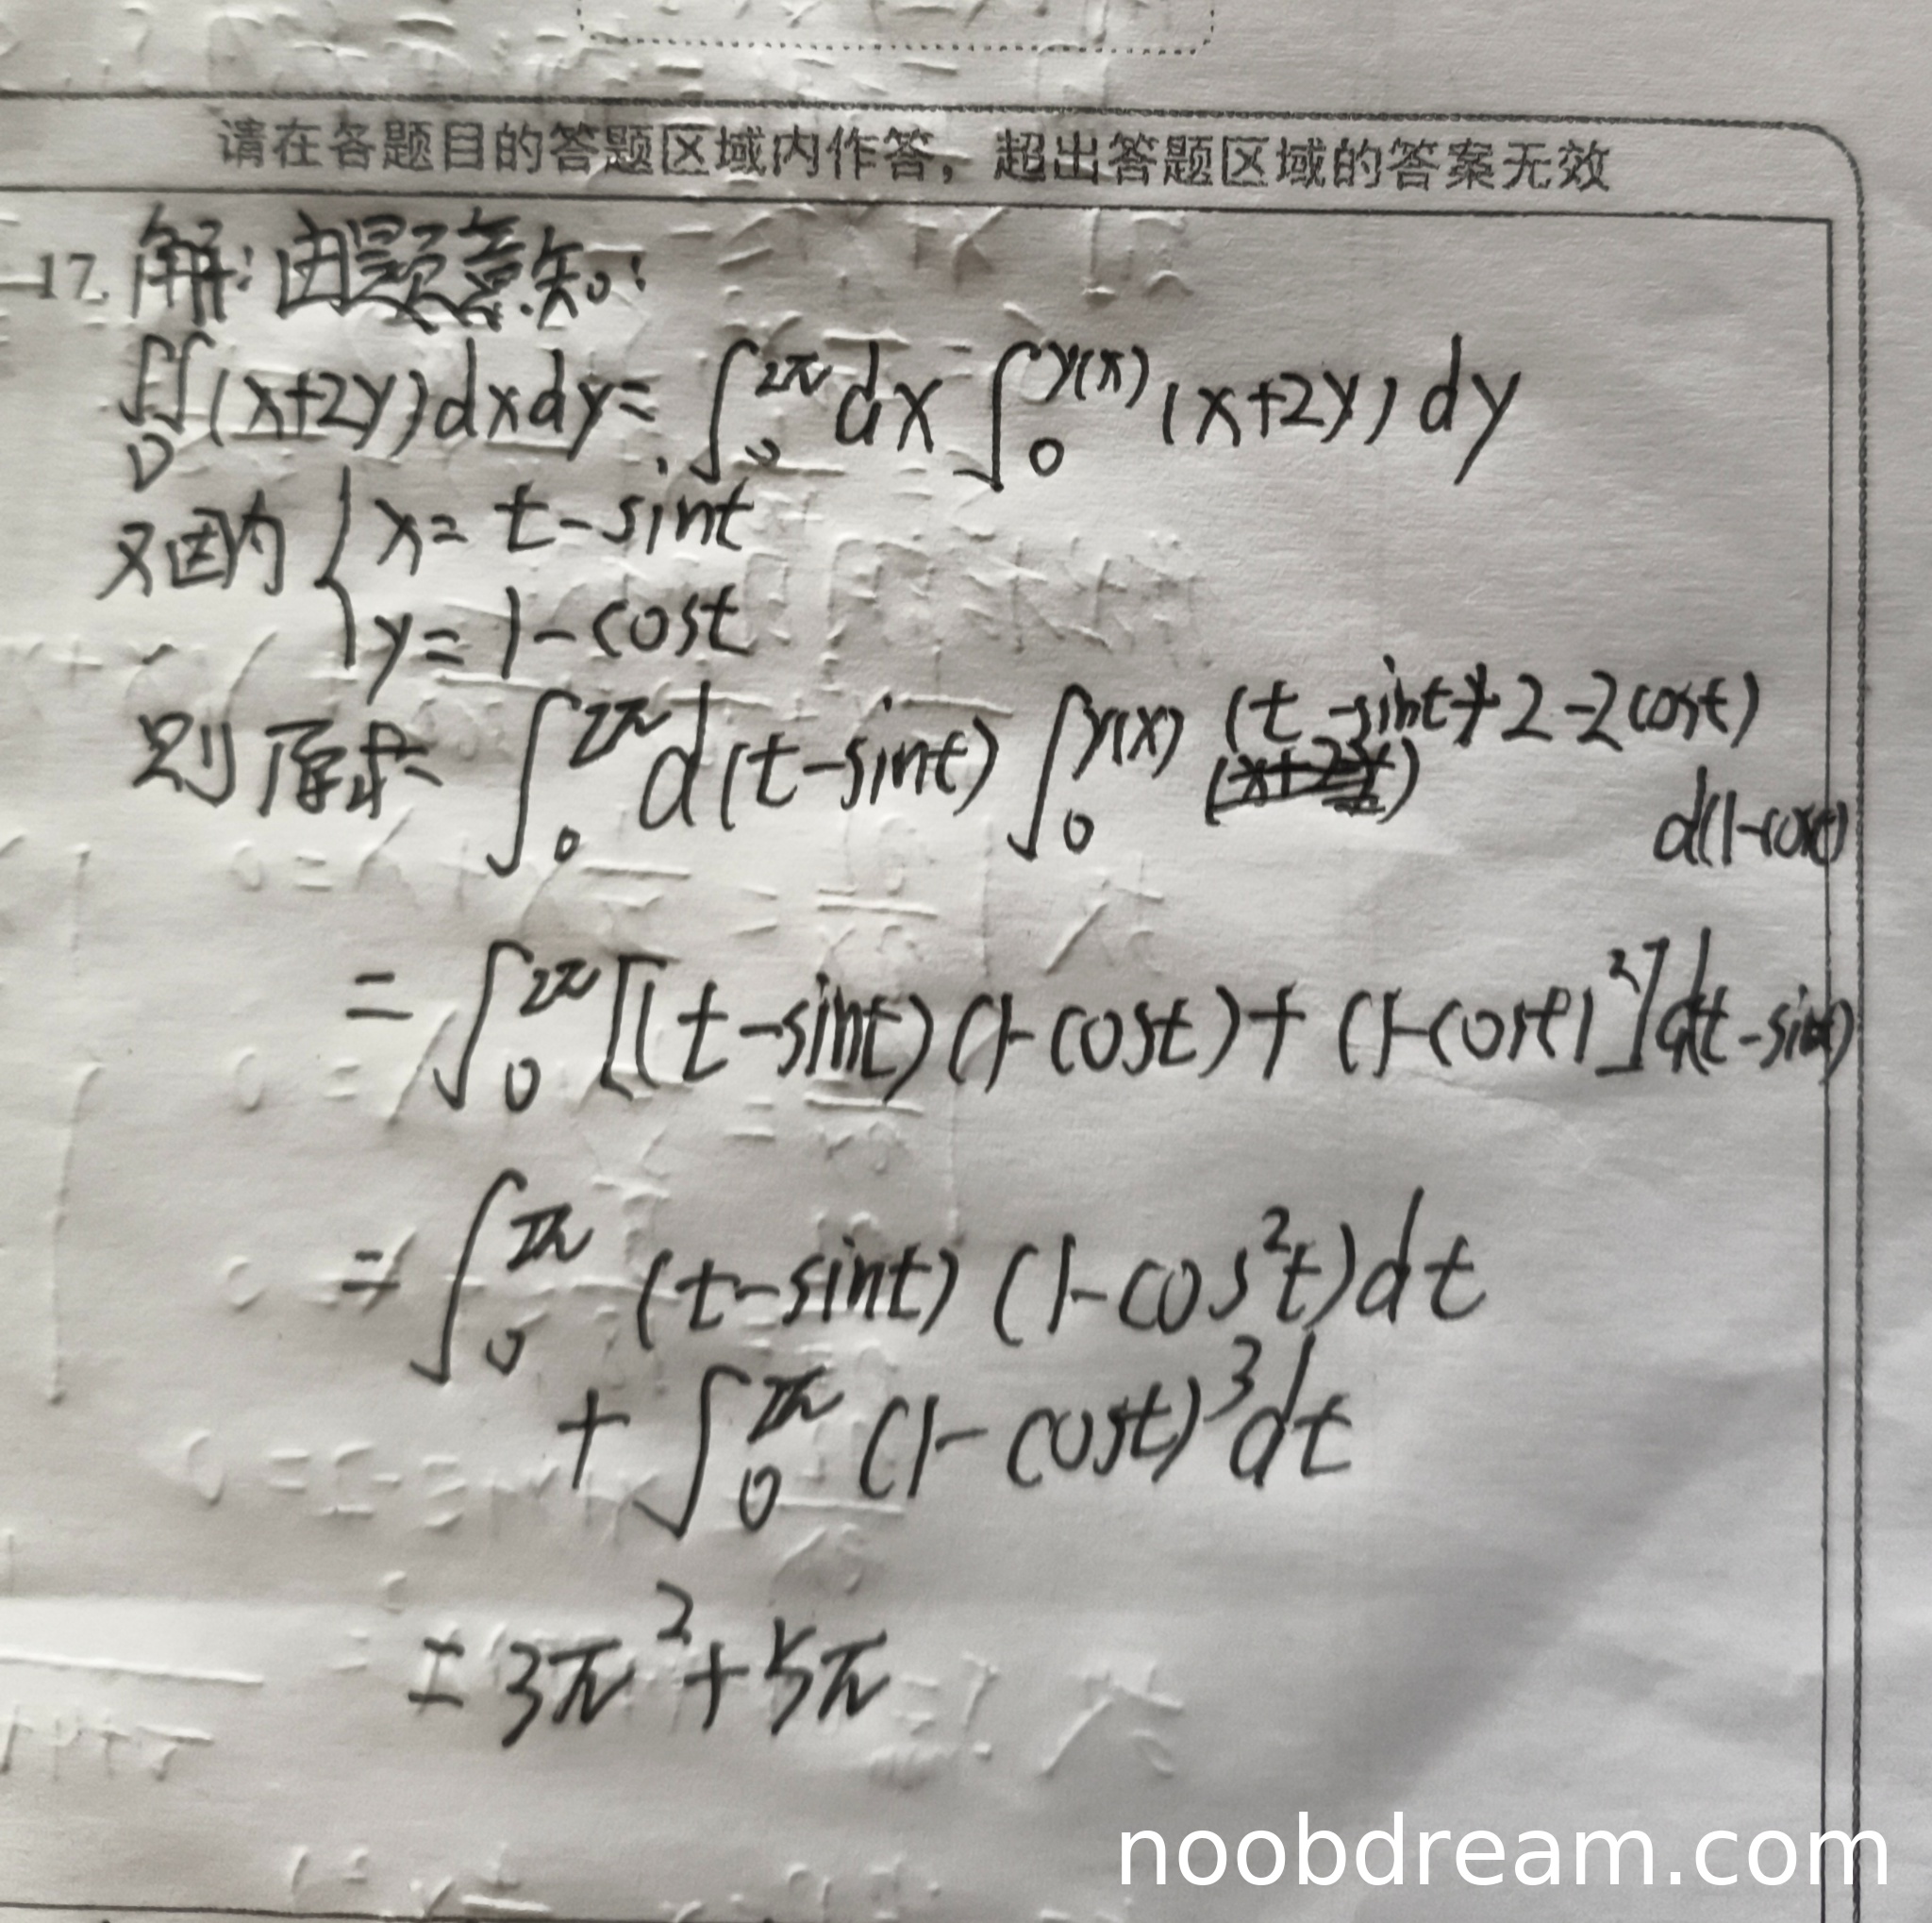 请在各题目的答题区域内作答，超出答题区域的答案无效
17. 解:由题意知:
∬_D (x+2y)dxdy = ∫_0^{2π} dx ∫_0^{y(x)} (x+2y) dy
又因为 { x = t - sint
y = 1 - cost
则原式= ∫_0^{2π} d(t-sint) ∫_0^{y(x)} (t-sint+2-2cost) d(1-cost)
= ∫_0^{2π} [(t-sint)(1-cost) + (1-cost)^2] d(t-sint)
= ∫_0^{2π} (t-sint) (1-cos^2t) dt
+ ∫_0^{2π} (1-cost)^3 dt
= 3π^2 + 5π
noobdream.com